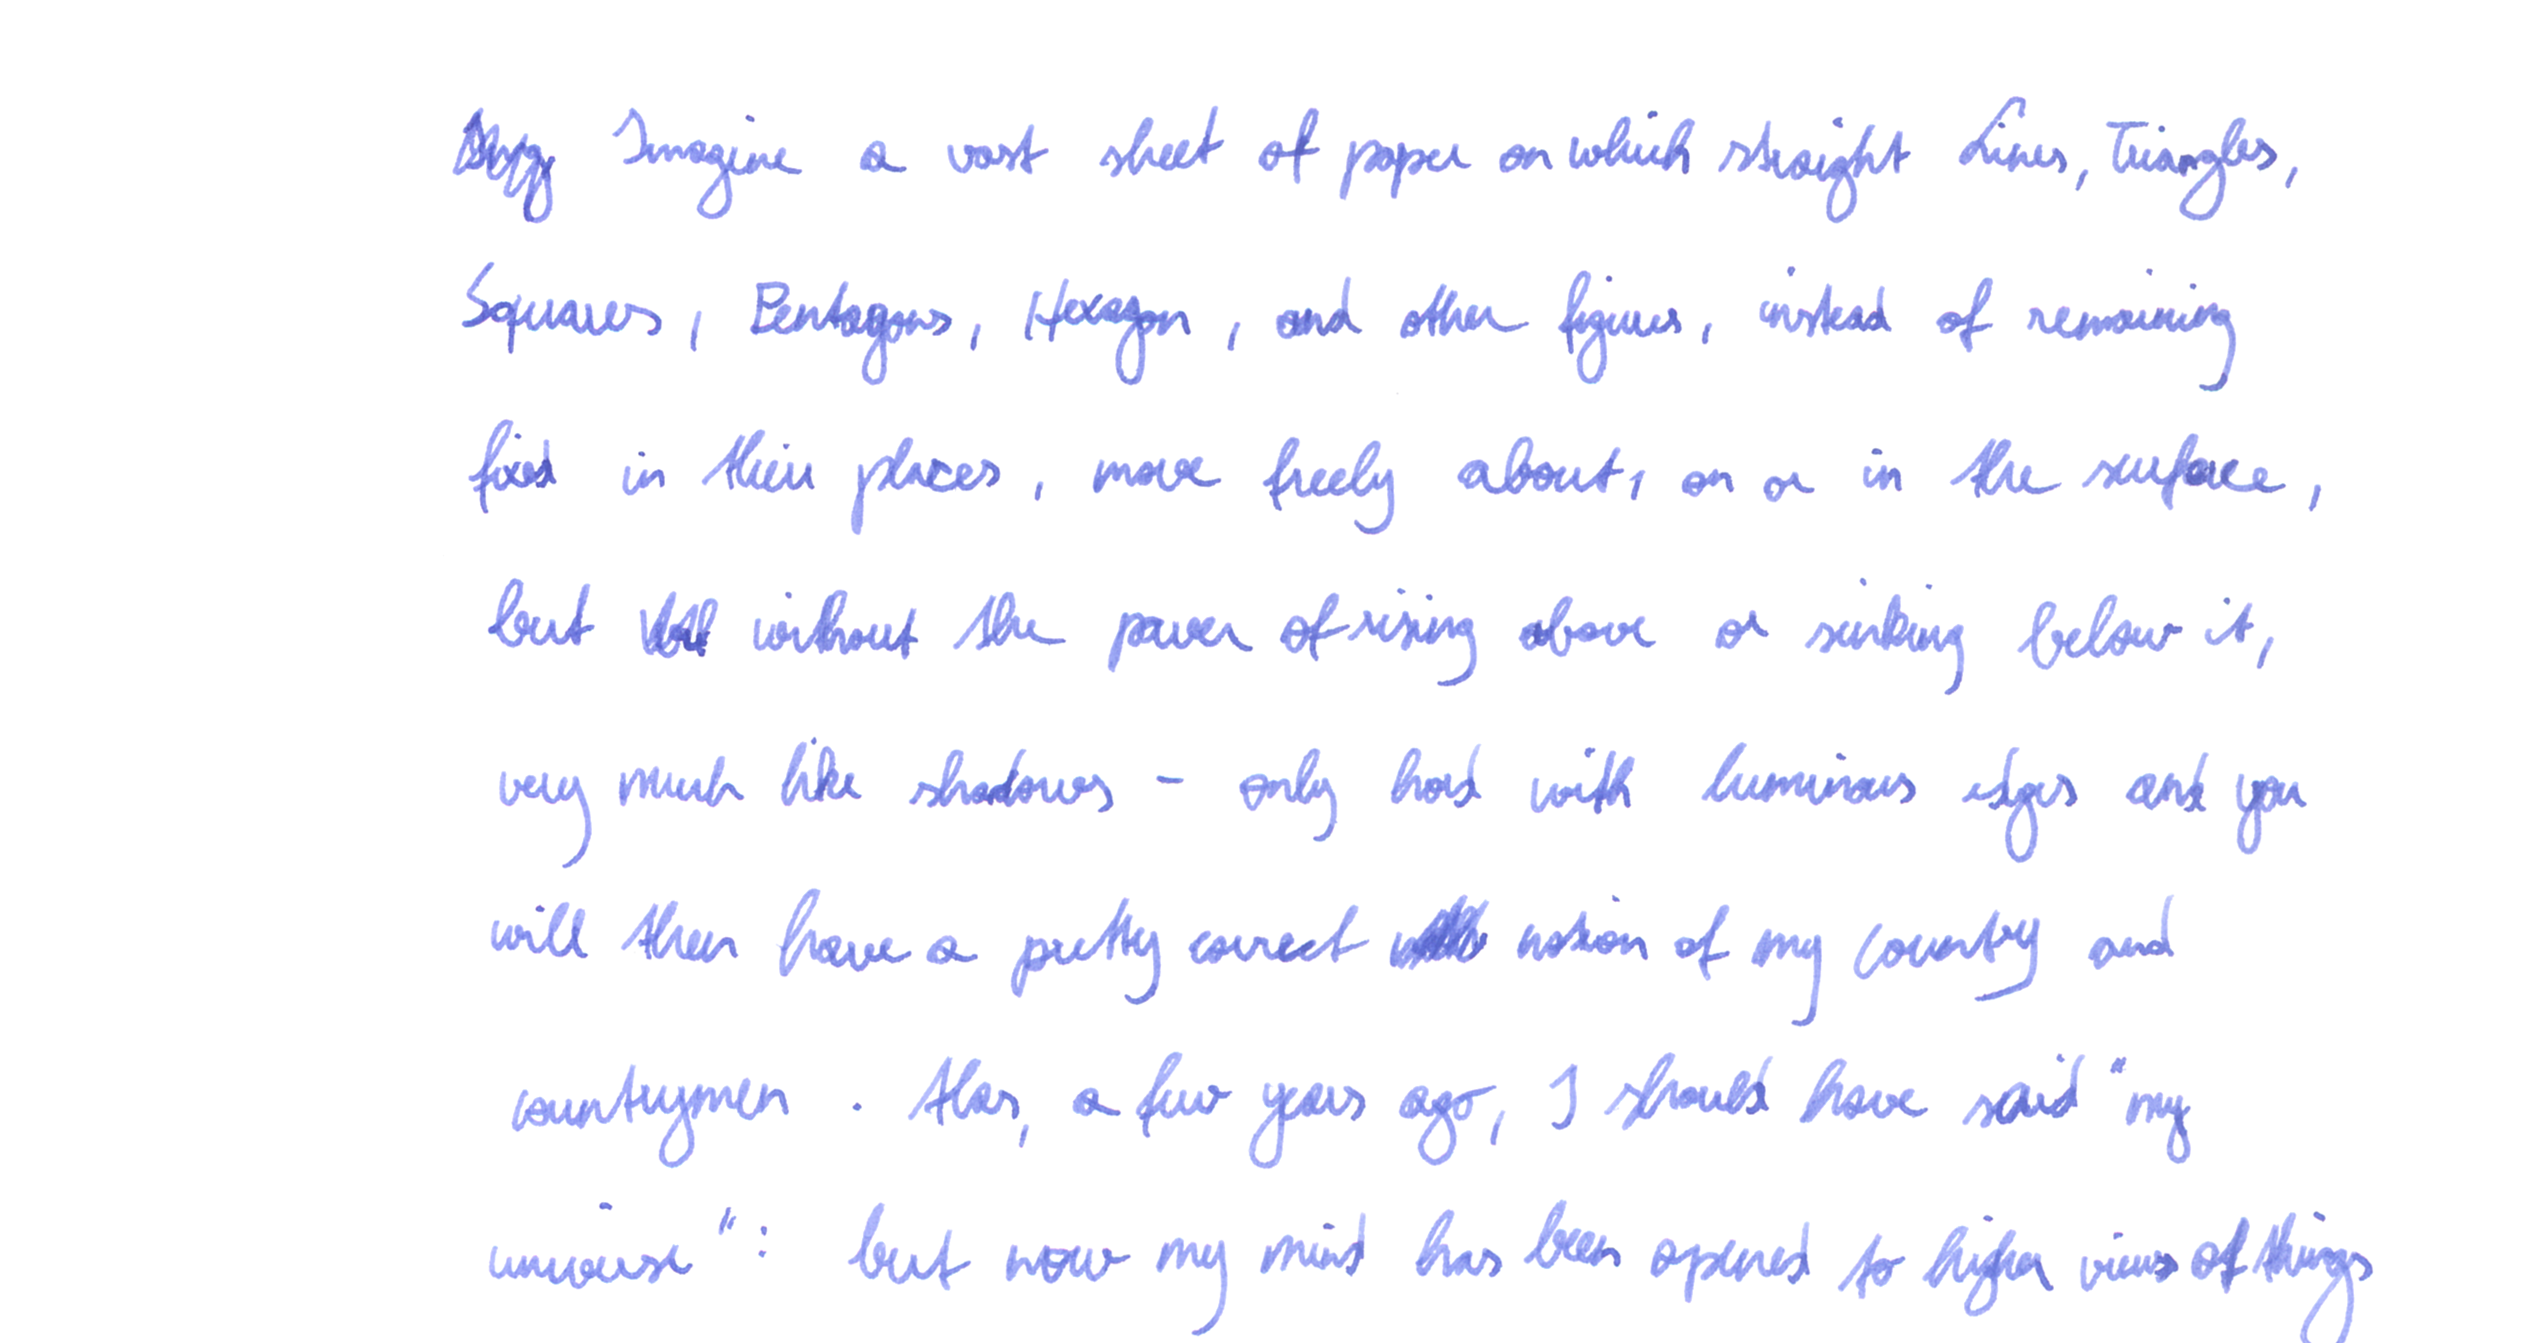 Imagine a vast sheet of paper on which straight Lines, Triangles,
Squares, Pentagons, Hexagon, and other figures, instead of remaining
fixed in their places, move freely about, on or in the surface,
but without the power of rising above or sinking below it,
very much like shadows - only hard with luminous edges and you
will then have a pretty correct notion of my country and
countrymen. Alas, a few years ago, I should have said "my
universe": but now my mind has been opened to higher views of things